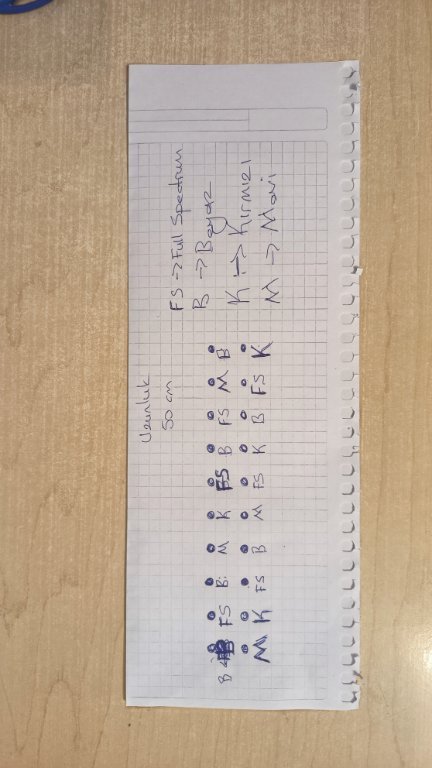 Uzunluk
50 cm
B FS B M K FS B FS M B
M K FS B M FS K B FS K
FS → Full Spectrum
B → Beyaz
K → Kırmızı
M → Mavi